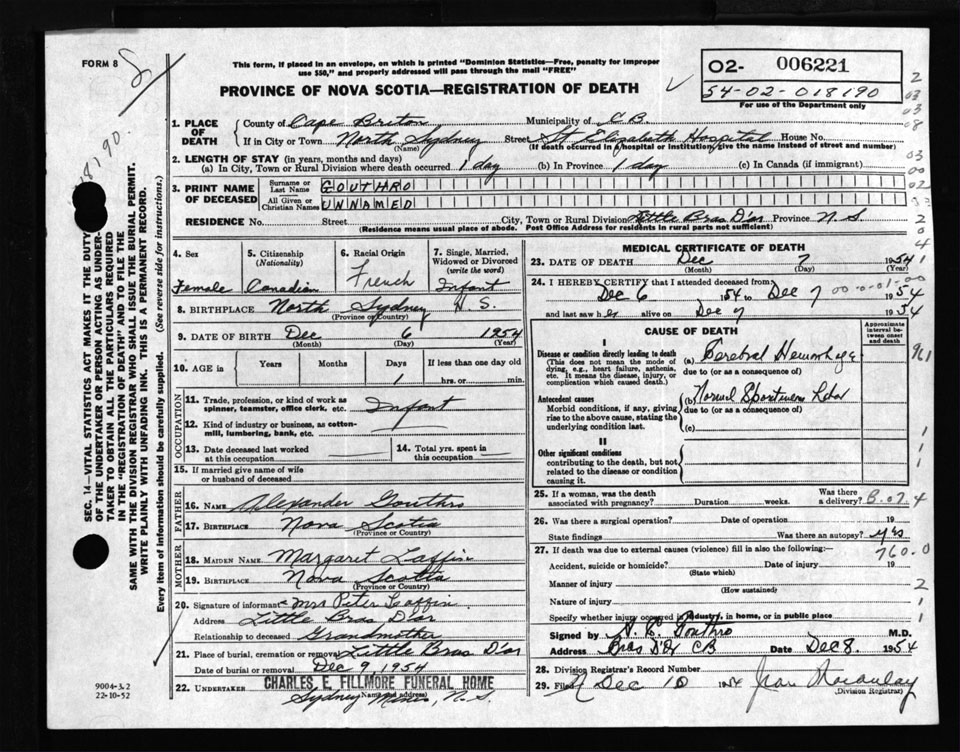 FORM 8
This form, if placed in an envelope, on which is printed "Dominion Statistics—Free, penalty for improper
use $50," and properly addressed will pass through the mail "FREE"
PROVINCE OF NOVA SCOTIA—REGISTRATION OF DEATH
02- 006221
54-02-018190
For use of the Department only
1. PLACE OF DEATH
County of Cape Briton Municipality of C.B.
If in City or Town North Sydney Street St Elizabeth Hospital House No.
(Name) (If death occurred in a hospital or institution, give the name instead of street and number)
2. LENGTH OF STAY (in years, months and days)
(a) In City, Town or Rural Division where death occurred 1 day (b) In Province 1 day (c) In Canada (if immigrant)
3. PRINT NAME OF DECEASED
Surname or Last Name GOUTHRO
All Given or Christian Names UNNAMED
RESIDENCE No. Street City, Town or Rural Division Little Bras D'or Province N.S.
(Residence means usual place of abode. Post Office Address for residents in rural parts not sufficient)
4. Sex Female
5. Citizenship (Nationality) Canadian
6. Racial Origin French
7. Single, Married, Widowed or Divorced (write the word) Infant
8. BIRTHPLACE North Sydney N.S.
(Province or Country)
9. DATE OF BIRTH Dec 6 1954
(Month) (Day) (Year)
10. AGE in Years Months Days 1 If less than one day old hrs. or min.
OCCUPATION
11. Trade, profession, or kind of work as spinner, teamster, office clerk, etc. Infant
12. Kind of industry or business, as cotton-mill, lumbering, bank, etc.
13. Date deceased last worked at this occupation
14. Total years spent in this occupation
15. If married give name of wife or husband of deceased
FATHER
16. NAME Alexander Gouthro
17. BIRTHPLACE Nova Scotia
(Province or Country)
MOTHER
18. MAIDEN NAME Margaret Laffin
19. BIRTHPLACE Nova Scotia
(Province or Country)
20. Signature of informant Mrs Peter Laffin
Address Little Bras D'or
Relationship to deceased Grandmother
21. Place of burial, cremation or removal Little Bras D'or
Date of burial or removal Dec 9, 1954
22. UNDERTAKER CHARLES E. FILLMORE FUNERAL HOME
(Name and address)
Sydney Mines, N.S.
MEDICAL CERTIFICATE OF DEATH
23. DATE OF DEATH Dec 7 1954
(Month) (Day) (Year)
24. I HEREBY CERTIFY that I attended deceased from
Dec 6 1954 to Dec 7 1954
and last saw her alive on Dec 7 1954
CAUSE OF DEATH
Approximate interval between onset and death
I
Disease or condition directly leading to death
(This does not mean the mode of dying, e.g., heart failure, asthenia, etc. It means the disease, injury, or complication which caused death.)
(a) Cerebral Hemorrhage
due to (or as a consequence of)
Antecedent causes
Morbid conditions, if any, giving rise to the above cause, stating the underlying condition last.
(b) Normal
due to (or as a consequence of)
(c)
II
Other significant conditions
contributing to the death, but not related to the disease or condition causing it.
25. If a woman, was the death associated with pregnancy? Duration weeks. Was there a delivery?
26. Was there a surgical operation? Date of operation 19
State findings Was there an autopsy? Yes
27. If death was due to external causes (violence) fill in also the following:— 760.0
Accident, suicide or homicide? Date of injury 19
(State which)
Manner of injury
(How sustained)
Nature of injury
Specify whether injury occurred in industry, in home, or in public place
Signed by Gouthro M.D.
Address Bras D'Or CB Date Dec 8. 1954
28. Division Registrar's Record Number
29. Filed Dec 10 1954 Jean Macaulay
(Division Registrar)
SEC. 14—VITAL STATISTICS ACT MAKES IT THE DUTY
OF THE UNDERTAKER OR PERSON ACTING AS UNDER-
TAKER TO OBTAIN ALL THE PARTICULARS REQUIRED
IN THE "REGISTRATION OF DEATH" AND TO FILE THE
SAME WITH THE DIVISION REGISTRAR WHO SHALL ISSUE THE BURIAL PERMIT.
WRITE PLAINLY WITH UNFADING INK. THIS IS A PERMANENT RECORD.
Every item of information should be carefully supplied. (See reverse side for instructions.)
9004-3.2
22-10-52